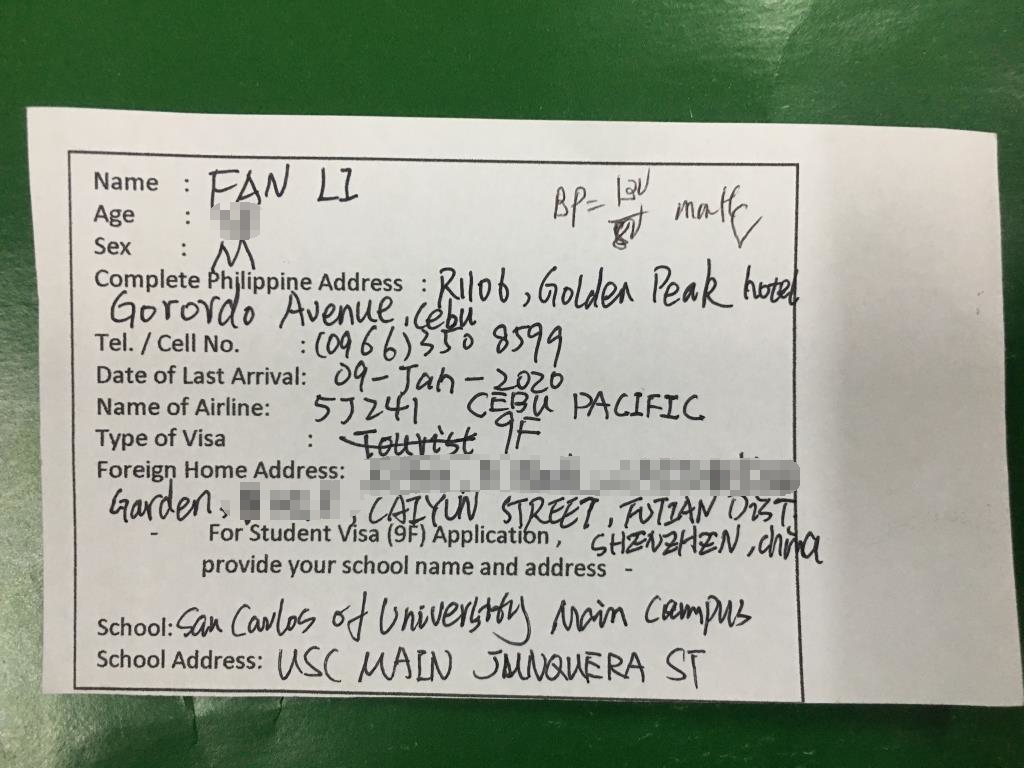 Name : FAN LI
BP=
Age :
Sex : M
Complete Philippine Address : R1106, Golden Peak hotel
Gorordo Avenue, Cebu
Tel. / Cell No. : (0966)350 8599
Date of Last Arrival: 09-Jan-2020
Name of Airline: 5J241 CEBU PACIFIC
Type of Visa : Tourist 9F
Foreign Home Address:
Garden, , CAIYUN STREET, FUTIAN DIST
- For Student Visa (9F) Application, SHENZHEN, china
provide your school name and address -
School: San Carlos of University Main Campus
School Address: USC MAIN JUNQUERA ST